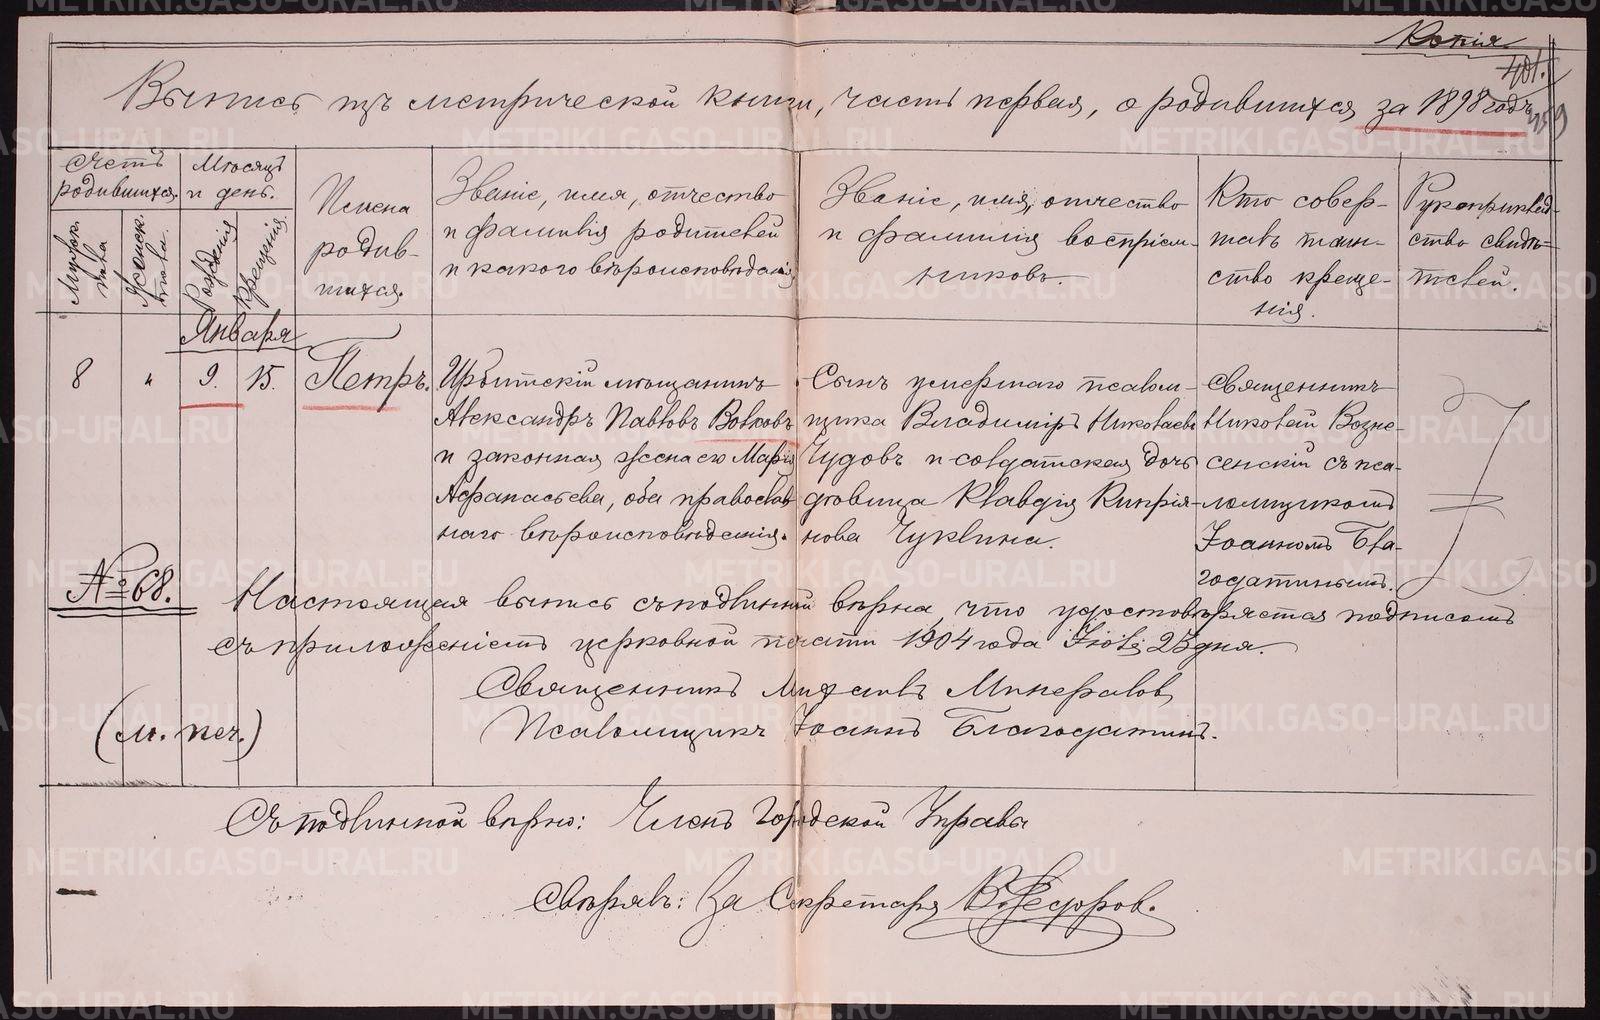 Копія
401.
459
Выпись изъ метрической книги, часть первая, о родившихся за 1898 годъ
Счетъ
родившихся.
Мѣсяцъ
и день.
Мужск.
пола
Женск.
пола.
Рожденія
Крещенія.
Имена
родив-
шихся.
Званіе, имя, отчество
и фамилія родителей
и какого вѣроисповѣданія
Званіе, имя, отчество
и фамилія воспріем-
никовъ.
Кто совер-
шалъ таин-
ство креще-
нія.
Рукоприклад-
ство свидѣ-
телей.
Января
8 " 9. 15. Петръ.
Ирбитскій мѣщанинъ
Александръ Павловъ Волковъ
и законная жена его Марія
Афанасьева, оба православ
наго вѣроисповѣданія.
Сынъ умершаго псалом-
щика Владиміръ Николаевъ
Чудовъ и солдатская дочь
дѣвица Клавдія Кипрія-
нова Чуклина.
Священникъ
Николай Возне-
сенскій съ пса-
ломщикомъ
Іоанномъ Бла-
годатнымъ.
№ 68.
Настоящая выпись съ подлинной вѣрна, что удостовѣряется подписомъ
съ приложеніемъ церковной печати 1904 года Іюля 25 дня.
Священникъ Михаилъ Минераловъ
Псаломщикъ Іоаннъ Благодатинъ.
(м. печ.)
Съ подлинной вѣрно: Членъ Городской Управы
Свѣрялъ: За Секретаря В. Федоровъ.
METRIKI.GASO-URAL.RU